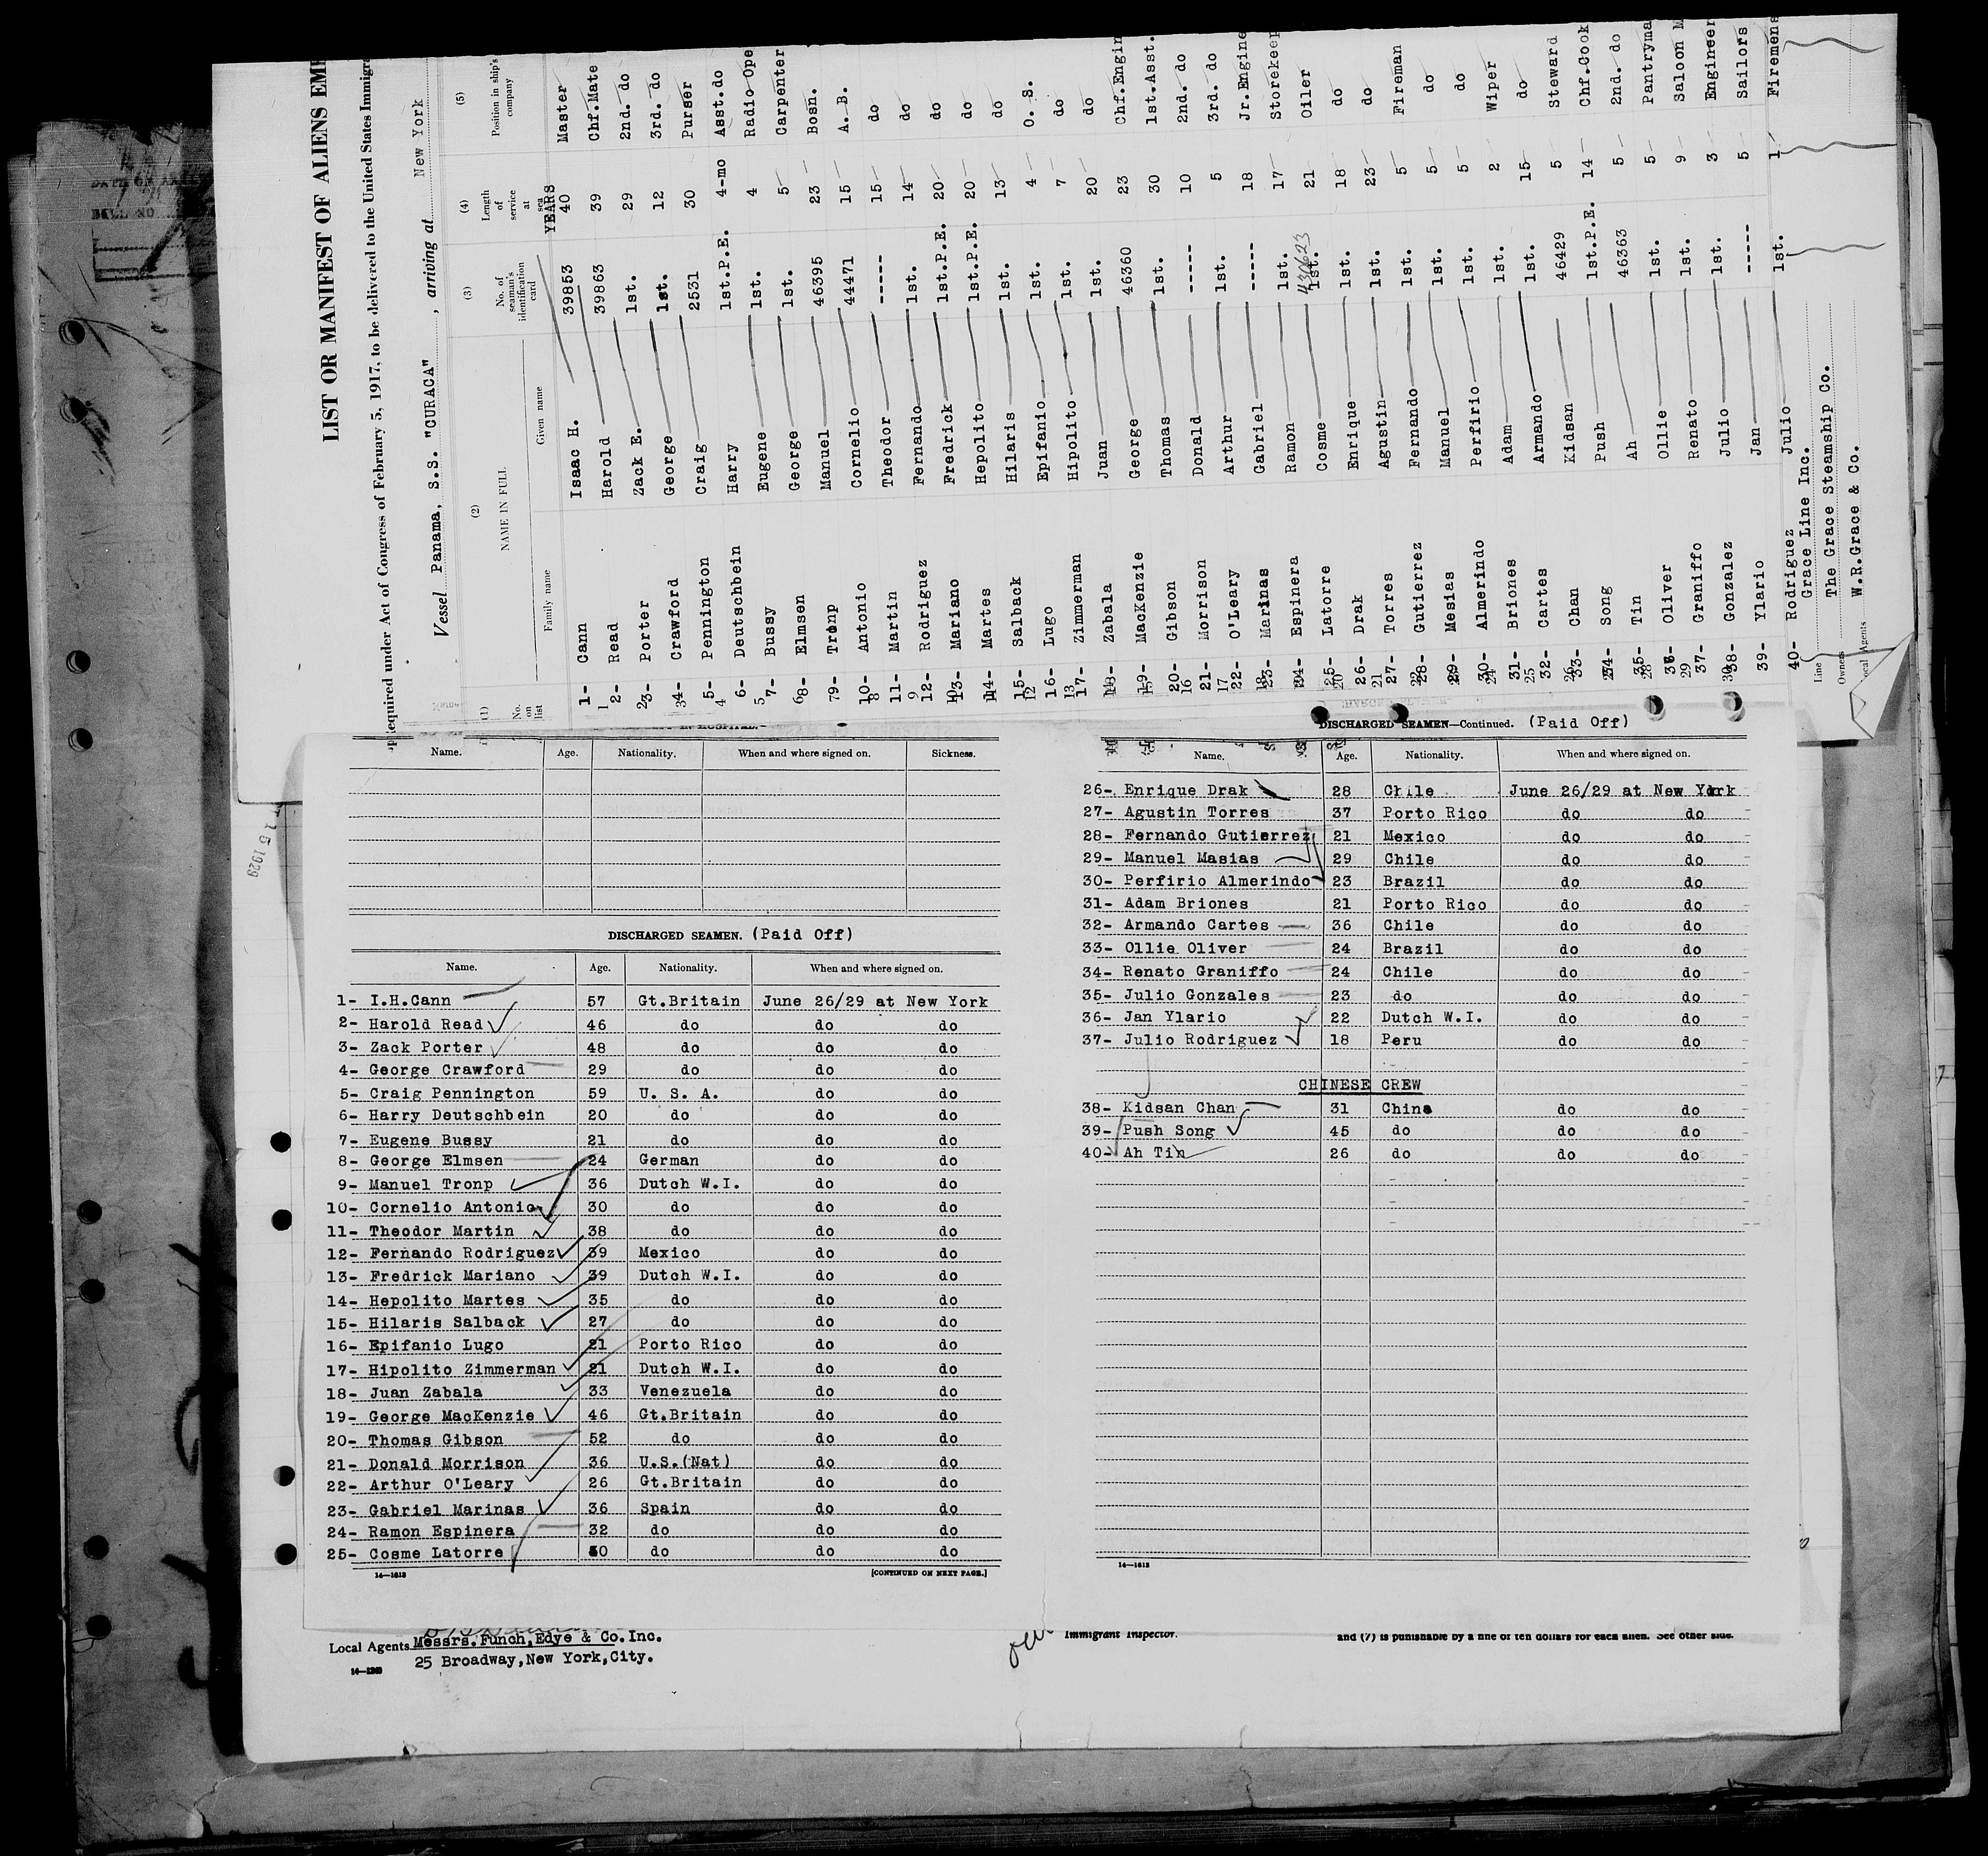 LIST OR MANIFEST OF ALIENS
Required under Act of Congress of February 5, 1917, to be delivered to the United States
Vessel Panama, S.S. "CURACA" , arriving at New York
(1) (2) (3) (4) (5)
No. on list NAME IN FULL No. of seaman's identification card Length of service at sea Position in ship's company
Family name Given name YEARS
1- Cann Isaac H. 39853 40 Master
2- Read Harold 39863 39 Chf.Mate
3- Porter Zack E. 1st. 29 2nd. do
4- Crawford George 1st. 12 3rd. do
5- Pennington Craig 2531 30 Purser
6- Deutschbein Harry 1st.P.E. 4-mo Asst.do
7- Bussy Eugene 1st. 4 Radio
8- Elmsen George 1st. 5 Carpenter
9- Tronp Manuel 46395 23 Bosn.
10- Antonio Cornelio 44471 15 A.B.
11- Martin Theodor ---- 15 do
12- Rodriguez Fernando 1st. 14 do
13- Mariano Fredrick 1st.P.E. 20 do
14- Martes Hepolito 1st.P.E. 20 do
15- Salback Hilaris 1st. 13 do
16- Lugo Epifanio 1st. 4 O.S.
17- Zimmerman Hipolito 1st. 7 do
18- Zabala Juan 1st. 20 do
19- MacKenzie George 46360 23 Chf.Engin
20- Gibson Thomas 1st. 30 1st.Asst.
21- Morrison Donald ---- 10 2nd. do
22- O'Leary Arthur 1st. 5 3rd. do
23- Marinas Gabriel ---- 18 Jr.Engine
24- Espinera Ramon 1st. 17 Storekeeper
25- Latorre Cosme 1st. 21 Oiler
26- Drak Enrique 1st. 18 do
27- Torres Agustin 1st. 23 do
28- Gutierrez Fernando 1st. 5 Fireman
29- Mesias Manuel 1st. 5 do
30- Almerindo Perfirio 1st. 5 do
31- Briones Adam 1st. 2 Wiper
32- Cartes Armando 1st. 15 do
33- Chan Kidsan 46429 5 Steward
34- Song Push 1st.P.E. 14 Chf.Cook
35- Tin Ah 46363 5 2nd. do
36- Oliver Ollie 1st. 5 Pantryma
37- Graniffo Renato 1st. 9 Saloon
38- Gonzalez Julio 1st. 3 Engineer
39- Ylario Jan ---- 5 Sailors
40- Rodriguez Julio 1st. 1 Firemens
Line Grace Line Inc.
Owners The Grace Steamship Co.
Local Agents W.R.Grace & Co.
Name. Age. Nationality. When and where signed on. Sickness.
DISCHARGED SEAMEN. (Paid Off)
Name. Age. Nationality. When and where signed on.
1- I.H.Cann 57 Gt.Britain June 26/29 at New York
2- Harold Read 46 do do do
3- Zack Porter 48 do do do
4- George Crawford 29 do do do
5- Craig Pennington 59 U. S. A. do do
6- Harry Deutschbein 20 do do do
7- Eugene Bussy 21 do do do
8- George Elmsen 24 German do do
9- Manuel Tronp 36 Dutch W.I. do do
10- Cornelio Antonio 30 do do do
11- Theodor Martin 38 do do do
12- Fernando Rodriguez 39 Mexico do do
13- Fredrick Mariano 39 Dutch W.I. do do
14- Hepolito Martes 35 do do do
15- Hilaris Salback 27 do do do
16- Epifanio Lugo 21 Porto Rico do do
17- Hipolito Zimmerman 21 Dutch W.I. do do
18- Juan Zabala 33 Venezuela do do
19- George MacKenzie 46 Gt.Britain do do
20- Thomas Gibson 52 do do do
21- Donald Morrison 36 U.S.(Nat) do do
22- Arthur O'Leary 26 Gt.Britain do do
23- Gabriel Marinas 36 Spain do do
24- Ramon Espinera 32 do do do
25- Cosme Latorre 50 do do do
14—1613 [CONTINUED ON NEXT PAGE.]
DISCHARGED SEAMEN—Continued. (Paid Off)
Name. Age. Nationality. When and where signed on.
26- Enrique Drak 28 Chile June 26/29 at New York
27- Agustin Torres 37 Porto Rico do do
28- Fernando Gutierrez 21 Mexico do do
29- Manuel Masias 29 Chile do do
30- Perfirio Almerindo 23 Brazil do do
31- Adam Briones 21 Porto Rico do do
32- Armando Cartes 36 Chile do do
33- Ollie Oliver 24 Brazil do do
34- Renato Graniffo 24 Chile do do
35- Julio Gonzales 23 do do do
36- Jan Ylario 22 Dutch W.I. do do
37- Julio Rodriguez 18 Peru do do
CHINESE CREW
38- Kidsan Chan 31 China do do
39- Push Song 45 do do do
40- Ah Tin 26 do do do
14—1613
Local Agents Messrs. Funch, Edye & Co. Inc.
25 Broadway, New York, City.
Immigrant Inspector.
and (7) is punishable by a fine of ten dollars for each alien. See other side.